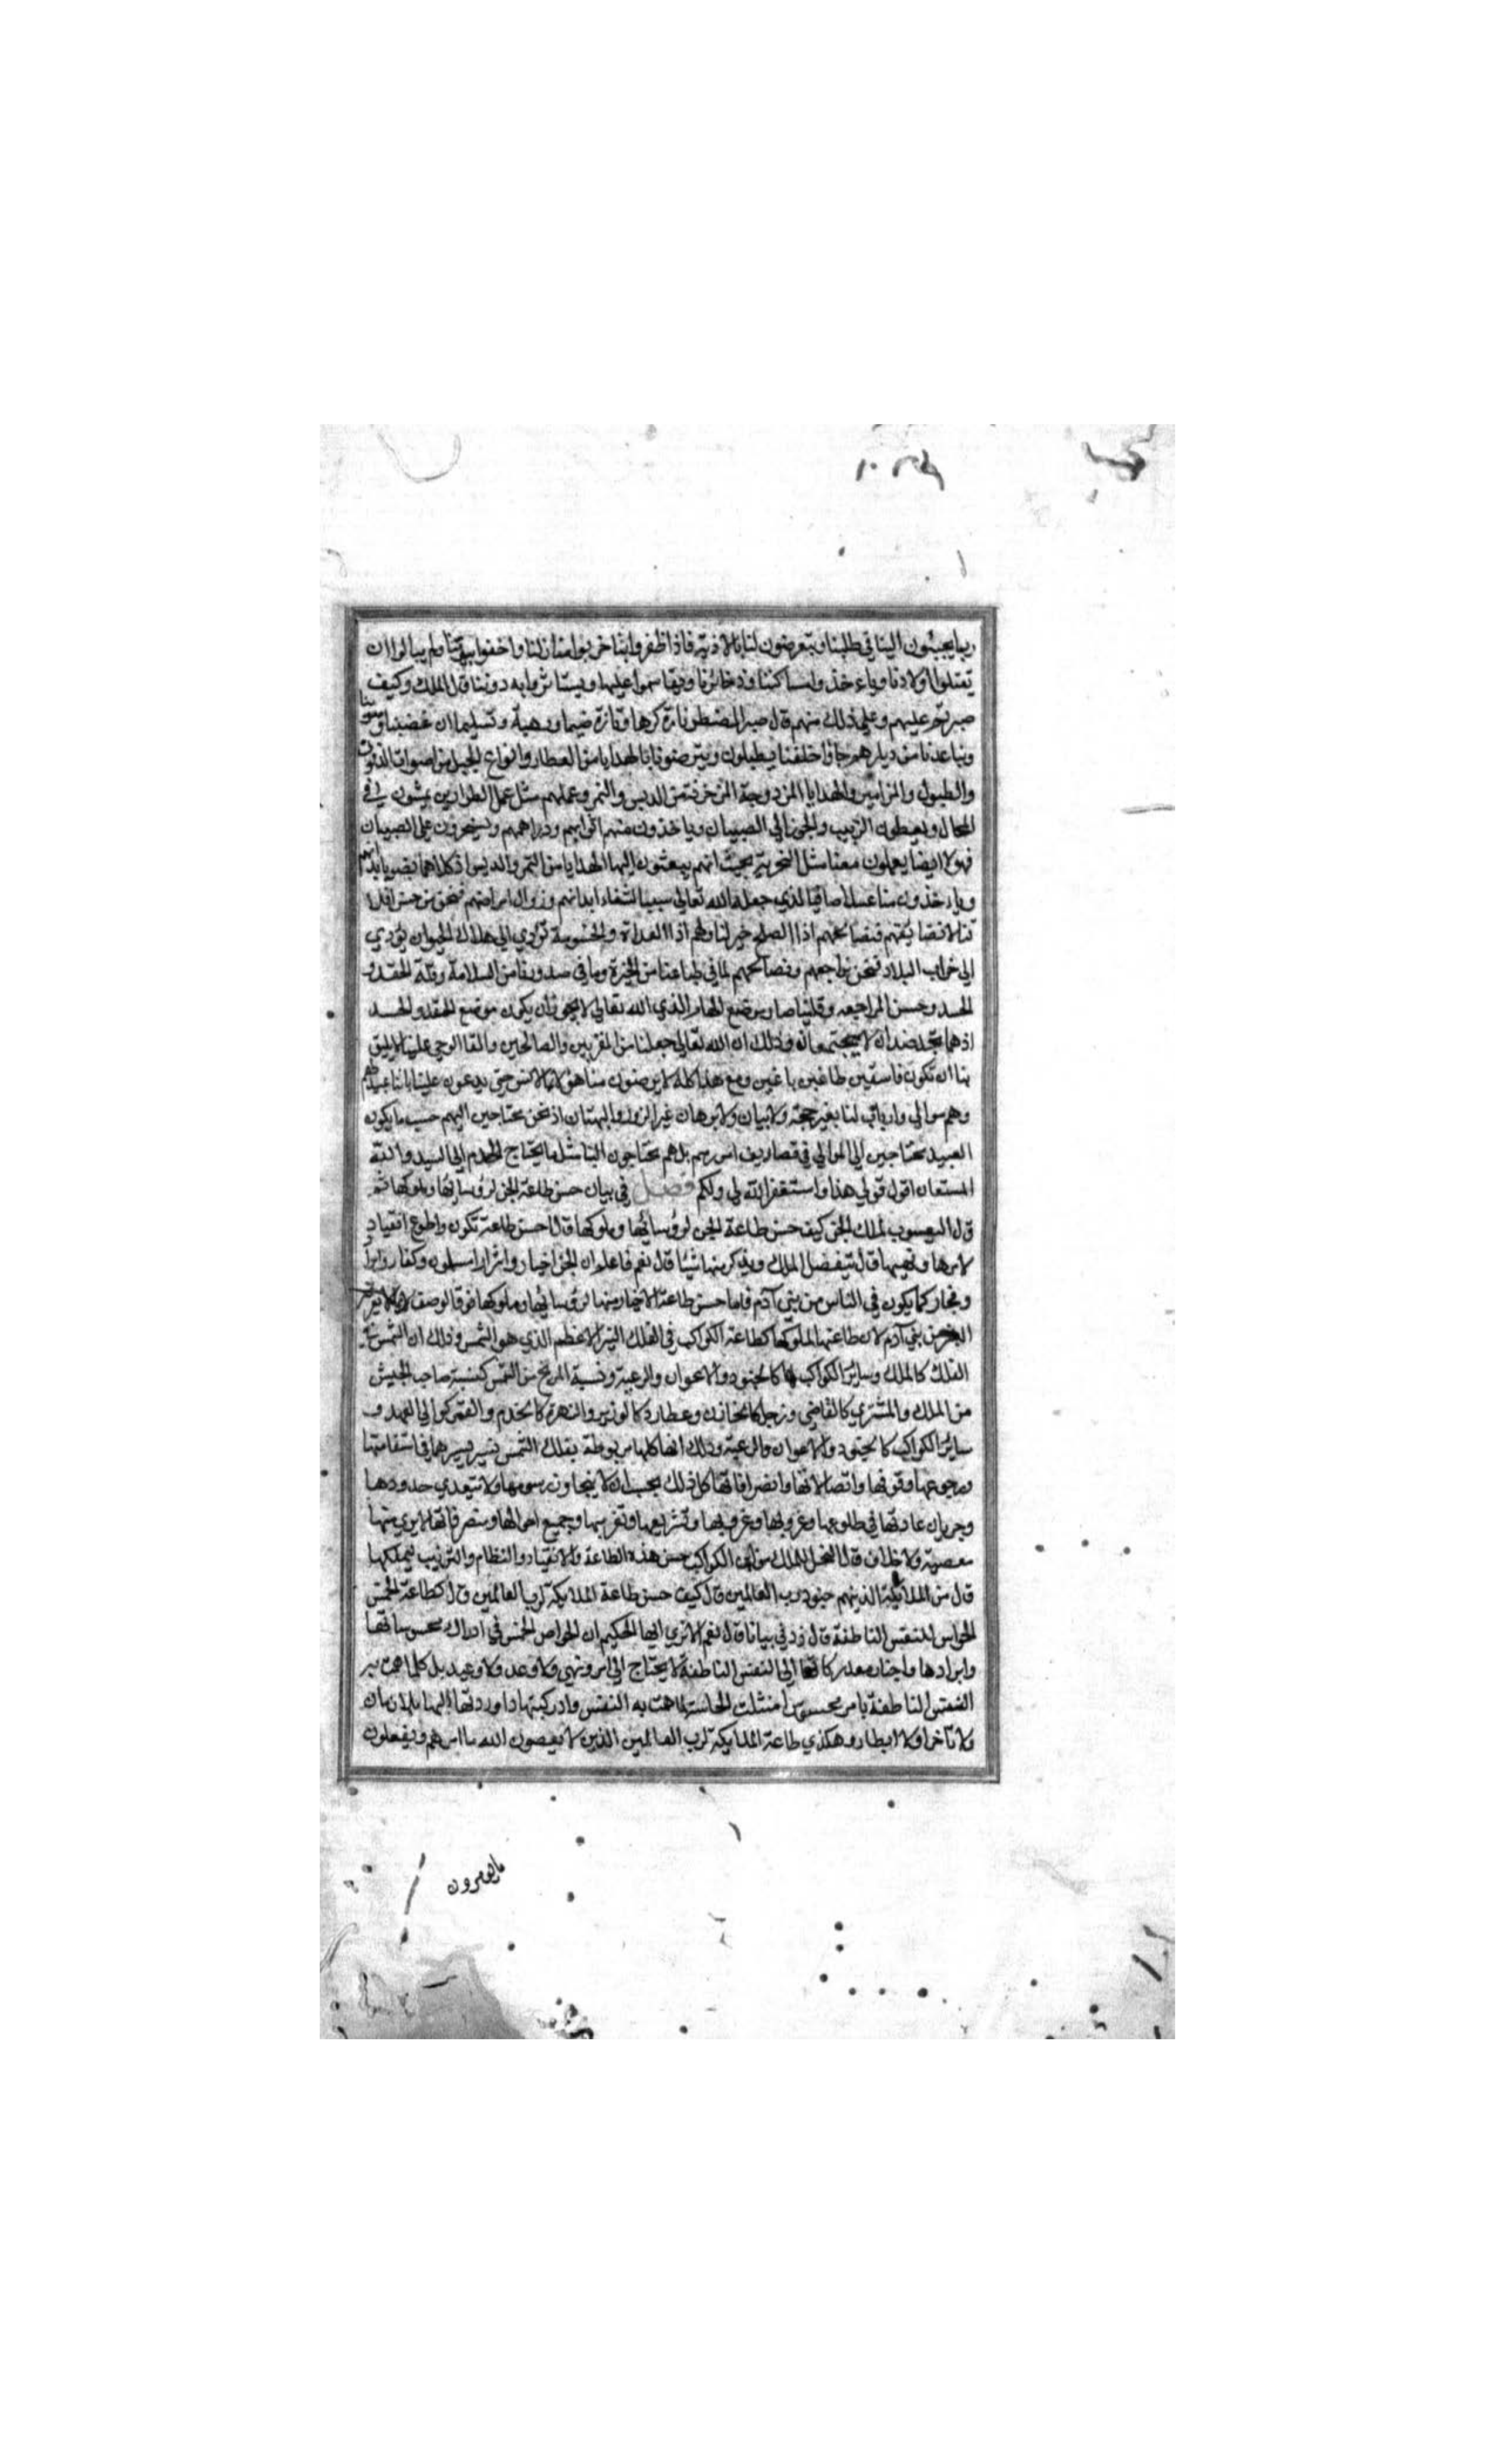 ربما يجيئون الينا في طلبنا ويتعرضون لنا بالاذية فاذا ظفروا بنا خربوا منازلنا واخفوا بيوتنا ولم يبالوا ان
يقتلوا اولادنا وياءخذوا مساكننا وذخائرنا ويقاسموا عليها ويستاثروا به دوننا قال الملك وكيف
صبرتم عليهم وعلى ذلك منهم قال صبر المضطر تارة كرها وتارة ضيما ورهبة وتسليما ان غضبنا
وتباعدنا من ديارهم جاؤا خلفنا يطلبون ويترضونا بالهدايا من العطار وانواع الحيل من اصوات الدفوف
والطبول والمزامير والهدايا المزدوجة المزخرفة من الدبس والتمر وعملهم مثل عمل الطرارين يمشون في
المحال ويعطون الزبيب والجوز الى الصبيان وياخذون منهم اثوابهم ودراهمهم ويسخرون على الصبيان
فهولا ايضا يعملون معنا مثل السخرية بحيث انهم يبعثون الينا الهدايا من التمر والدبس اذ كلاهما يضر بابدانهم
وياءخذون منا عسلا صافيا الذي جعله الله تعالى سببا لشفاء ابدانهم وزوال امراضهم فنحن من حسن اخلا
قنا لا نضايقهم فنصالحهم اذا الصلح خير لنا ولهم اذا العداوة والخصومة تؤدي الى هلاك الحيوان يؤدي
الى خراب البلاد فنحن نراجعهم ونصالحهم لما في طباعنا من الخيرة وما في صدورنا من السلامة وقلة الحقد و
الحسد وحسن المراجعه وقلبنا صار موضع الهام الذي الله تعالى لا يجوز ان يكون موضع الحقد والحسد
اذ هما ضدان لا يجتمعان وذلك ان الله تعالى جعلنا من المقربين والصالحين والقا الوحي علينا لا يليق
بنا ان نكون فاسقين طاغين باغين ومع هذا كله لا يرضون منا هولا الانس حتى يدعون علينا باننا عبيد لهم
وهم موالي وارباب لنا بغير حجة ولا بيان ولا برهان غير الزور والبهتان اذ نحن محتاجين اليهم حسب ما يكون
العبيد محتاجين الى الموالي في تصاريف امورهم بل هم محتاجون الينا مثل ما يحتاج الخدم الى السيد والله
المستعان اقول قولي هذا واستغفر الله لي ولكم فصل في بيان حسن طاعة الجن لرؤسائها وملوكها ثم
قال اليعسوب لملك الجن كيف حسن طاعة الجن لرؤسائها وملوكها قال احسن طاعة تكون واطوع انقياد
لامرها ونهيها قال يتفضل الملك ويذكر منها شيئا قال نعم فاعلم ان الجن اخيار واشرار مسلمون وكفار وابرار
وفجار كما يكون في الناس من بني آدم فاما حسن طاعة الاخيار منها لرؤسائها وملوكها فوق الوصف
من بني آدم لان طاعتها لملوكها كطاعة الكواكب في الفلك النير الاعظم الذي هو الشمس وذلك ان الشمس في
الفلك كالملك وسائر الكواكب لها كالجنود والاعوان والرعية ونسبة المريخ من الشمس كنسبة صاحب الجيش
من الملك والمشتري كالقاضي وزحل كالخازن وعطارد كالوزير والزهرة كالخدم والقمر كوالي العهد و
سائر الكواكب كالجنود والاعوان والرعية وذلك انها كلها مربوطة بفلك الشمس تسير بسيرها في استقامتها
ورجوعها وقوفها واتصالاتها وانصرافاتها كل ذلك بحسبان لا يتجاوز رسومها ولا تتعدي حدودها
وجريان عاداتها في طلوعها وغروبها وتشريقها وتغريبها وجميع احوالها ومتصرفاتها لا يرى منها
معصية ولا خلاف قال النحل للملك من اين الكواكب حسن هذه الطاعة والانقياد والنظام والترتيب لملكها
قال من الملائكة الذينهم جنود رب العالمين قال كيف حسن طاعة الملايكة لرب العالمين قال كطاعة الخمس
الحواس للنفس الناطقة قال زدني بيانا قال نعم الا ترى ايها الحكيم ان الحواس الخمس في ادراك محسوساتها
وايرادها واخبار مدركاتها الى النفس الناطقة لا يحتاج الى امر ونهي ولا وعد ولا وعيد بل كلما همت به
النفس الناطقة بامر محسوس امتثلت الحاسة لما همت به النفس وادركتها واوردتها اليها بلا زمان
ولا تأخر ولا ابطاء وهكذي طاعة الملايكة لرب العالمين الذين لا يعصون الله ما امرهم ويفعلون
ما يومرون